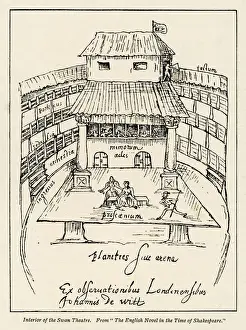 tectum
porticus
mimorum
ædes
orchestra
ingressus
proscænium
planities siue arena
Ex obseruationibus Londinensibus
Johannis de witt
Interior of the Swan Theatre. From "The English Novel in the Time of Shakespeare."